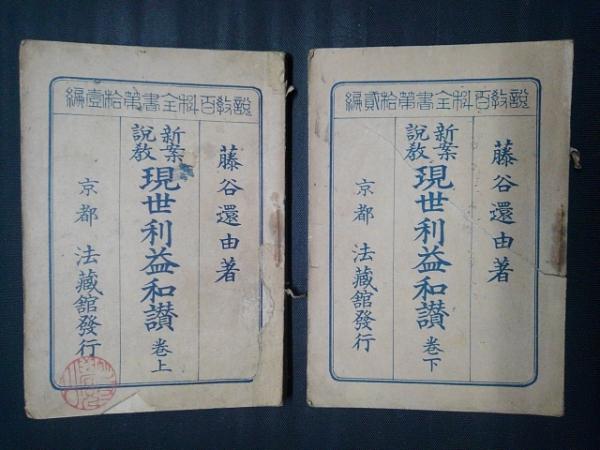 説教百科全書第拾壹編
藤谷還由著
新案
説教
現世利益和讃 卷上
京都 法藏館發行
説教百科全書第拾貳編
藤谷還由著
新案
説教
現世利益和讃 卷下
京都 法藏館發行